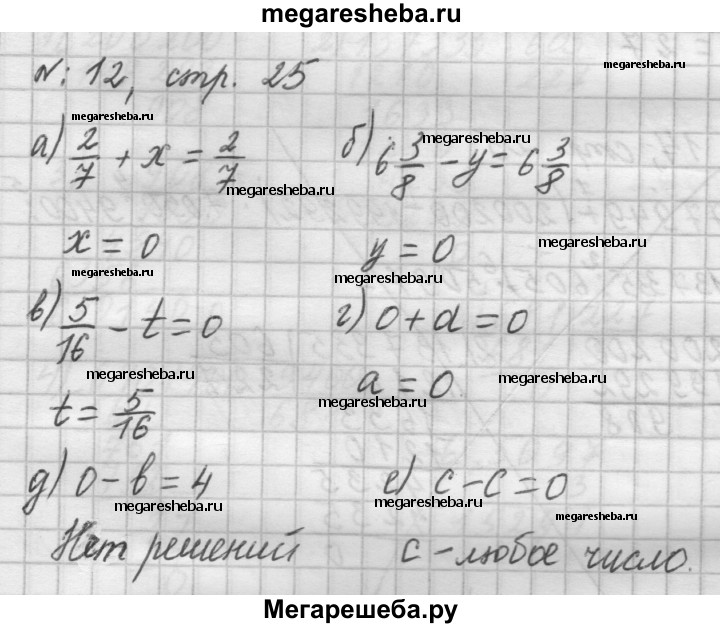 megaresheba.ru
№: 12, стр. 25
megaresheba.ru
megaresheba.ru
megaresheba.ru
а) 2/7 + x = 2/7 б) 6 3/8 − y = 6 3/8
megaresheba.ru
x = 0 y = 0
megaresheba.ru
megaresheba.ru
megaresheba.ru
в) 5/16 − t = 0 г) 0 + a = 0
megaresheba.ru
megaresheba.ru
a = 0
megaresheba.ru
t = 5/16
д) 0 − в = 4 е) c − c = 0
megaresheba.ru
megaresheba.ru
megaresheba.ru
Нет решений c – любое число.
Мегарешеба.ру